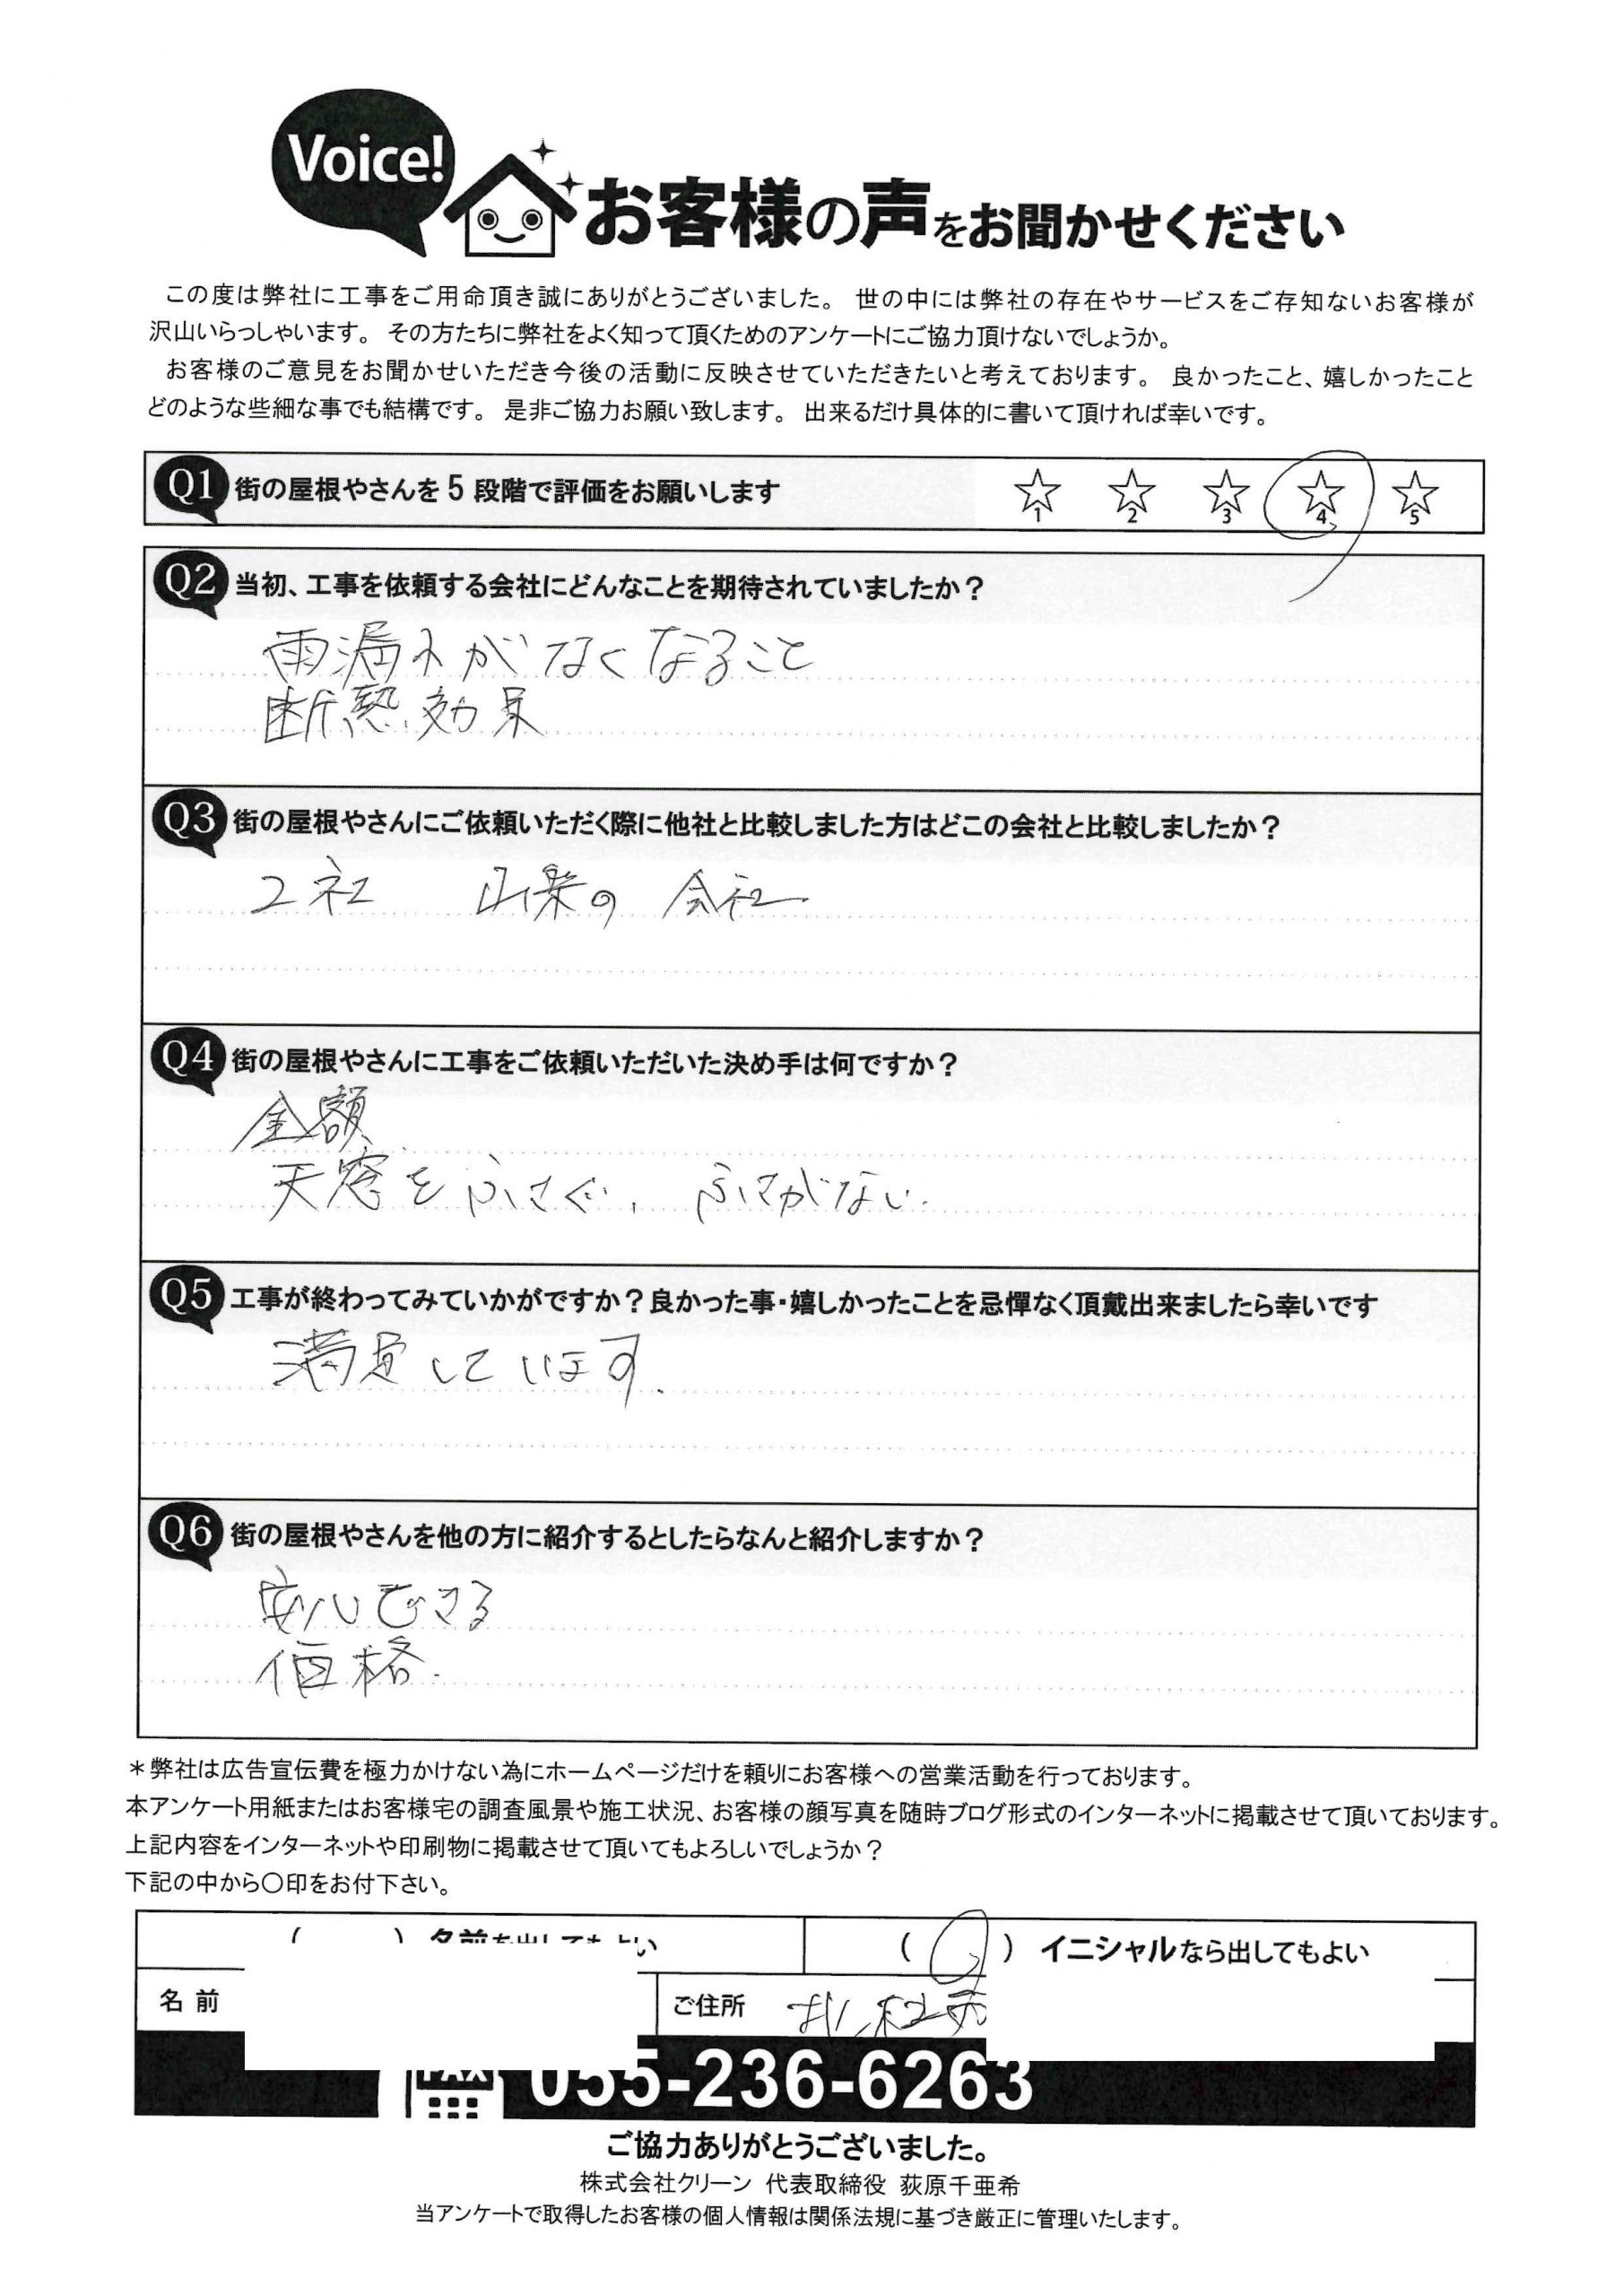 Voice!
お客様の声をお聞かせください
この度は弊社に工事をご用命頂き誠にありがとうございました。 世の中には弊社の存在やサービスをご存知ないお客様が
沢山いらっしゃいます。 その方たちに弊社をよく知って頂くためのアンケートにご協力頂けないでしょうか。
お客様のご意見をお聞かせいただき今後の活動に反映させていただきたいと考えております。 良かったこと、嬉しかったこと
どのような些細な事でも結構です。 是非ご協力お願い致します。 出来るだけ具体的に書いて頂ければ幸いです。
Q1 街の屋根やさんを5段階で評価をお願いします ☆1 ☆2 ☆3 ☆4 ☆5
Q2 当初、工事を依頼する会社にどんなことを期待されていましたか？
雨漏れがなくなること
断熱効果
Q3 街の屋根やさんにご依頼いただく際に他社と比較しました方はどこの会社と比較しましたか？
2社 山梨の会社
Q4 街の屋根やさんに工事をご依頼いただいた決め手は何ですか？
金額
天窓をふさぐ、ふさがない.
Q5 工事が終わってみていかがですか？良かった事・嬉しかったことを忌憚なく頂戴出来ましたら幸いです
満足しています.
Q6 街の屋根やさんを他の方に紹介するとしたらなんと紹介しますか？
安心できる
価格.
＊弊社は広告宣伝費を極力かけない為にホームページだけを頼りにお客様への営業活動を行っております。
本アンケート用紙またはお客様宅の調査風景や施工状況、お客様の顔写真を随時ブログ形式のインターネットに掲載させて頂いております。
上記内容をインターネットや印刷物に掲載させて頂いてもよろしいでしょうか？
下記の中から〇印をお付下さい。
( ) 名前を出してもよい (〇) イニシャルなら出してもよい
名前 ご住所
FAX 055-236-6263
ご協力ありがとうございました。
株式会社クリーン 代表取締役 荻原千亜希
当アンケートで取得したお客様の個人情報は関係法規に基づき厳正に管理いたします。